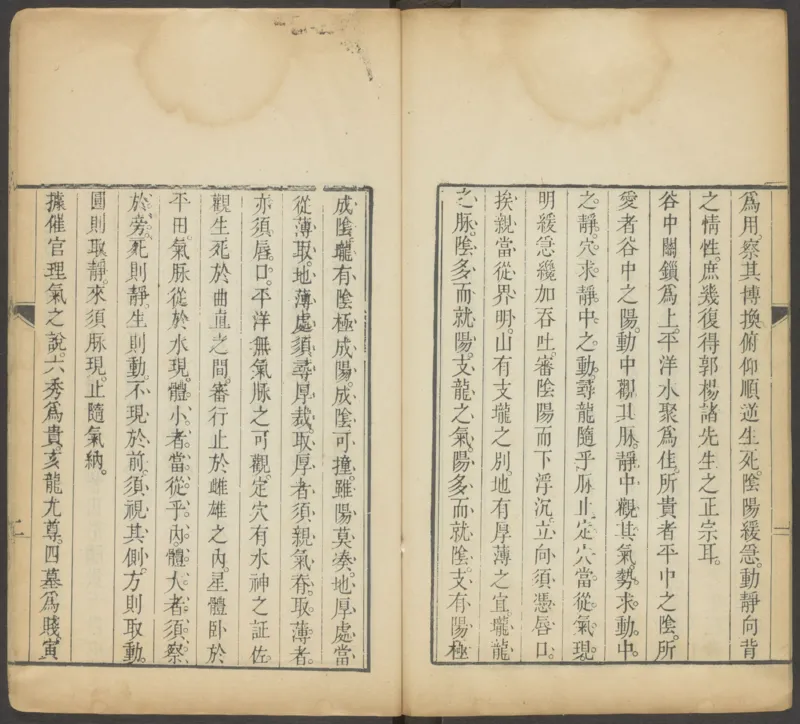 爲用。察其博換。俯仰順逆生死。陰陽緩急。動靜向背
之情性。庶幾復得郭楊諸先生之正宗耳。
谷中關鎖爲上。平洋水聚爲佳。所貴者平中之陰。所
愛者谷中之陽。動中觀其脉。靜中觀其氣。勢求動。中。
之。靜。穴求靜中。之。動。尋龍隨乎脉止。定穴當從氣現。
明緩急纔加吞吐。審陰陽而下浮沉。立向須憑唇口。
挨親當從界明。山有支壠之別。地有厚薄之宜。壠龍
之脉。陰多而就陽。支龍之氣。陽多而就陰。支有陽極
成陰。壠有陰極成陽。成陰可撞。雖陽莫湊。地厚處當
從薄取。地薄處須尋厚裁。取厚者須親氣脊。取薄者。
亦須唇口。平洋無氣脉之可觀。定穴有水神之証佐。
觀生死於曲直之間。審行止於雌雄之內。星體卧於
平田。氣脉從於水現。體小者當從乎內。體大者須察
於旁。死則靜。生則動。不現於前。須視其側。方則取動。
圓則取靜。來須脉現。止隨氣納。
據催官理氣之說。六秀爲貴。亥龍尤尊。四墓爲賤。寅